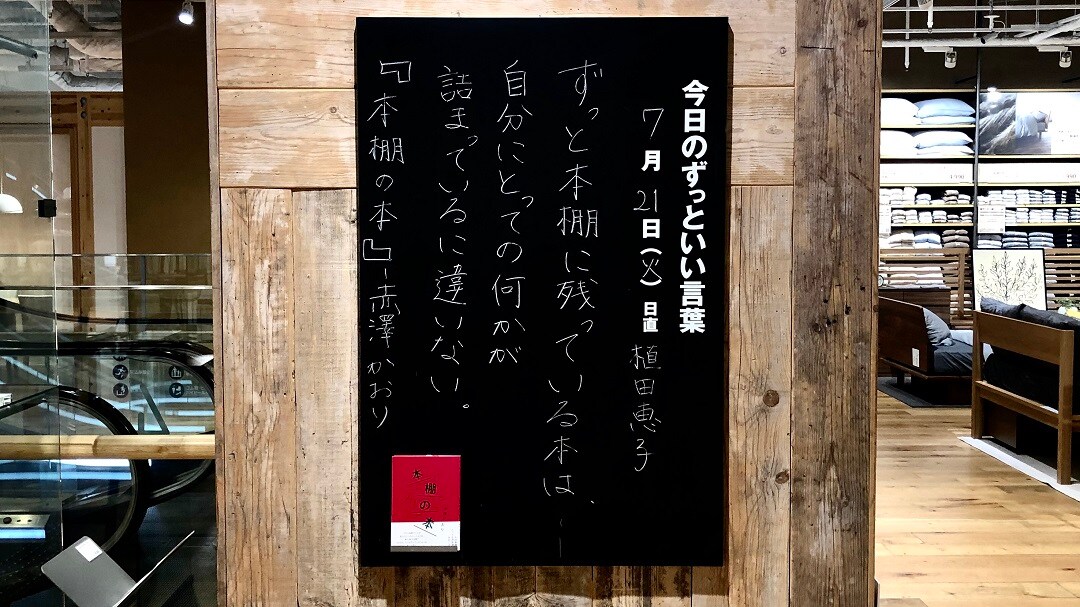 今日のずっといい言葉
7月21日(火) 日直 植田恵子
ずっと本棚に残っている本は、
自分にとっての何かが
詰まっているに違いない。
『本棚の本』-赤澤かおり
本棚の本